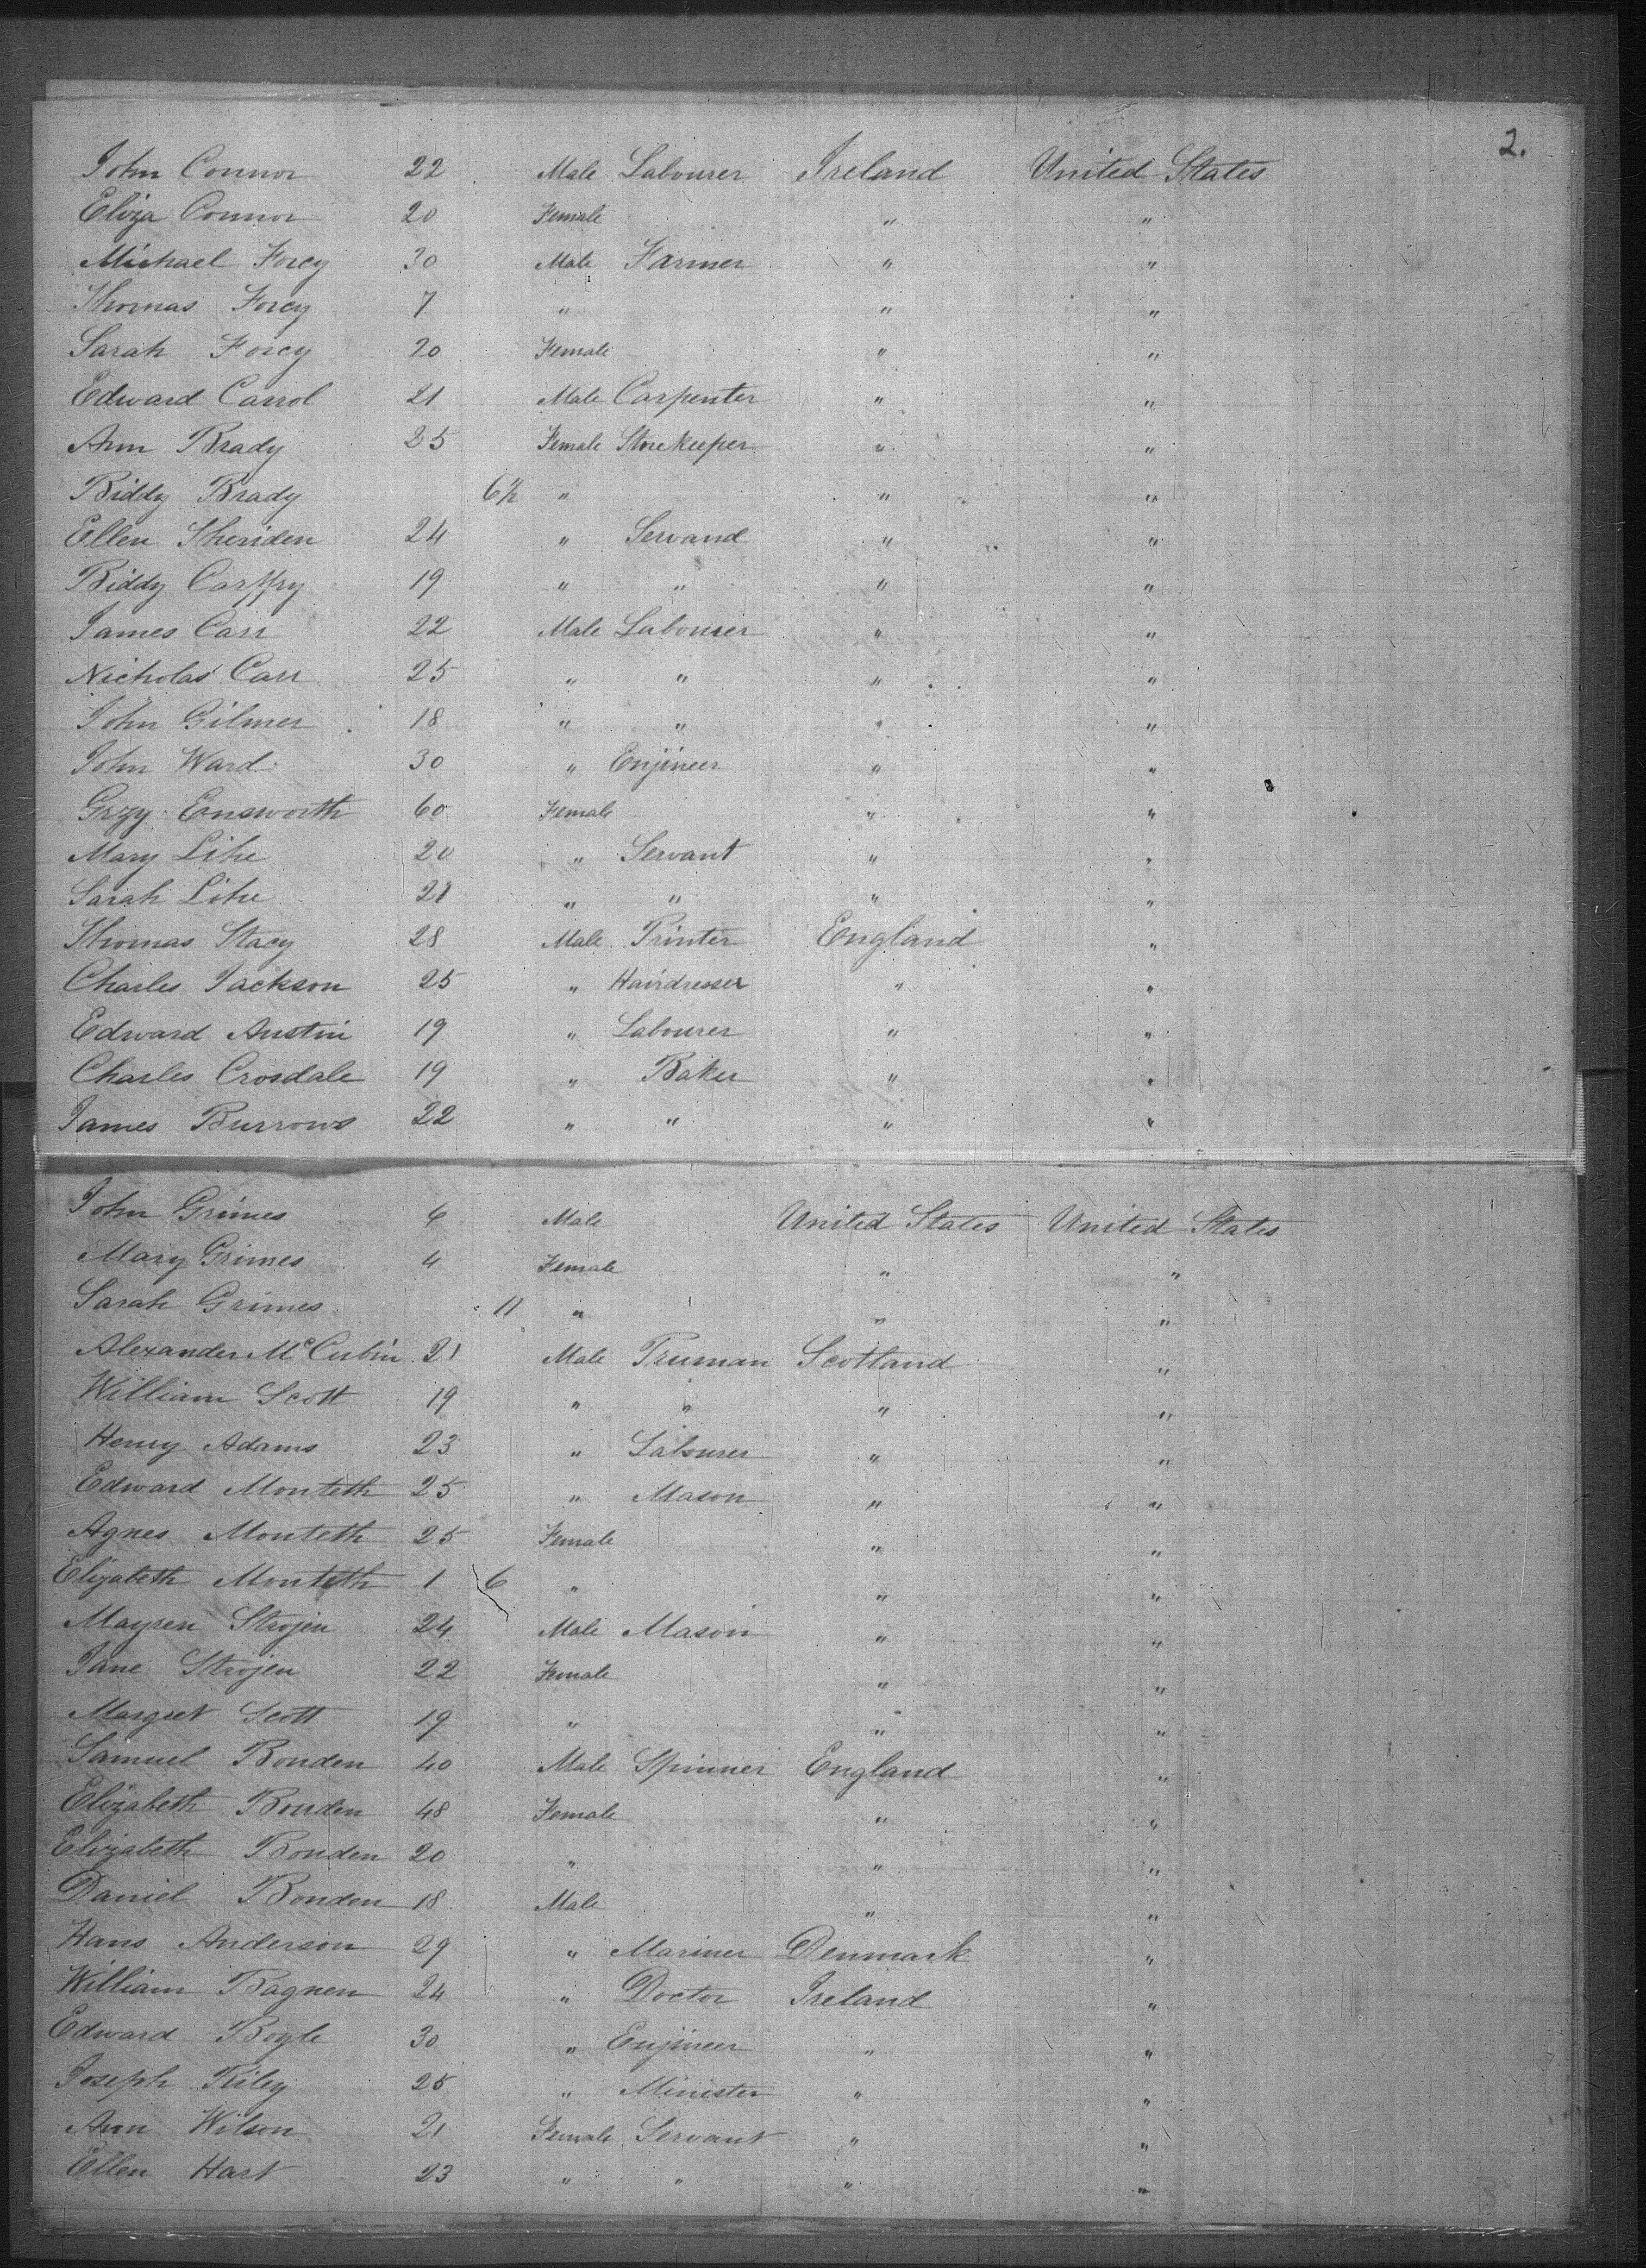 2.
John Connor 22 Male Labourer Ireland United States
Eliza Connor 20 Female " "
Michael Forcy 30 Male Farmer " "
Thomas Forcy 7 " " "
Sarah Forcy 20 Female " "
Edward Carrol 21 Male Carpenter " "
Ann Brady 25 Female Storekeeper " "
Biddy Brady 6½ " " "
Ellen Sheriden 24 " Servand " "
Biddy 19 " " " "
James Carr 22 Male Labourer " "
Nicholas Carr 25 " " " "
John Gilmer 18 " " " "
John Ward 30 " Enjineer " "
Grzy Emsworth 60 Female " "
Mary Lihe 20 " Servant " "
Sarah Lihe 21 " " " "
Thomas Stacy 28 Male Printer England "
Charles Jackson 25 " Hairdresser " "
Edward Austin 19 " Labourer " "
Charles Crosdale 19 " Baker " "
James Burrows 22 " " " "
John Grimes 6 Male United States United States
Mary Grimes 4 Female " "
Sarah Grimes 11 " " "
Alexander McCubin 21 Male Truman Scotland "
William Scott 19 " " " "
Henry Adams 23 " Labourer " "
Edward Monteth 25 " Mason " "
Agnes Monteth 25 Female " "
Elizabeth Monteth 1 6 " " "
Mayren Strojen 24 Male Mason " "
Jane Strojen 22 Female " "
Margret Scott 19 " " "
Samuel Bonden 40 Male Spinner England "
Elizabeth Bonden 48 Female " "
Elizabeth Bonden 20 " " "
Daniel Bonden 18 Male " "
Hans Anderson 29 " Mariner Denmark "
William Bagnen 24 " Doctor Ireland "
Edward Boyle 30 " Enjineer " "
Joseph Riley 25 " Minister " "
Ann Wilson 21 Female Servant " "
Ellen Hart 23 " " " "